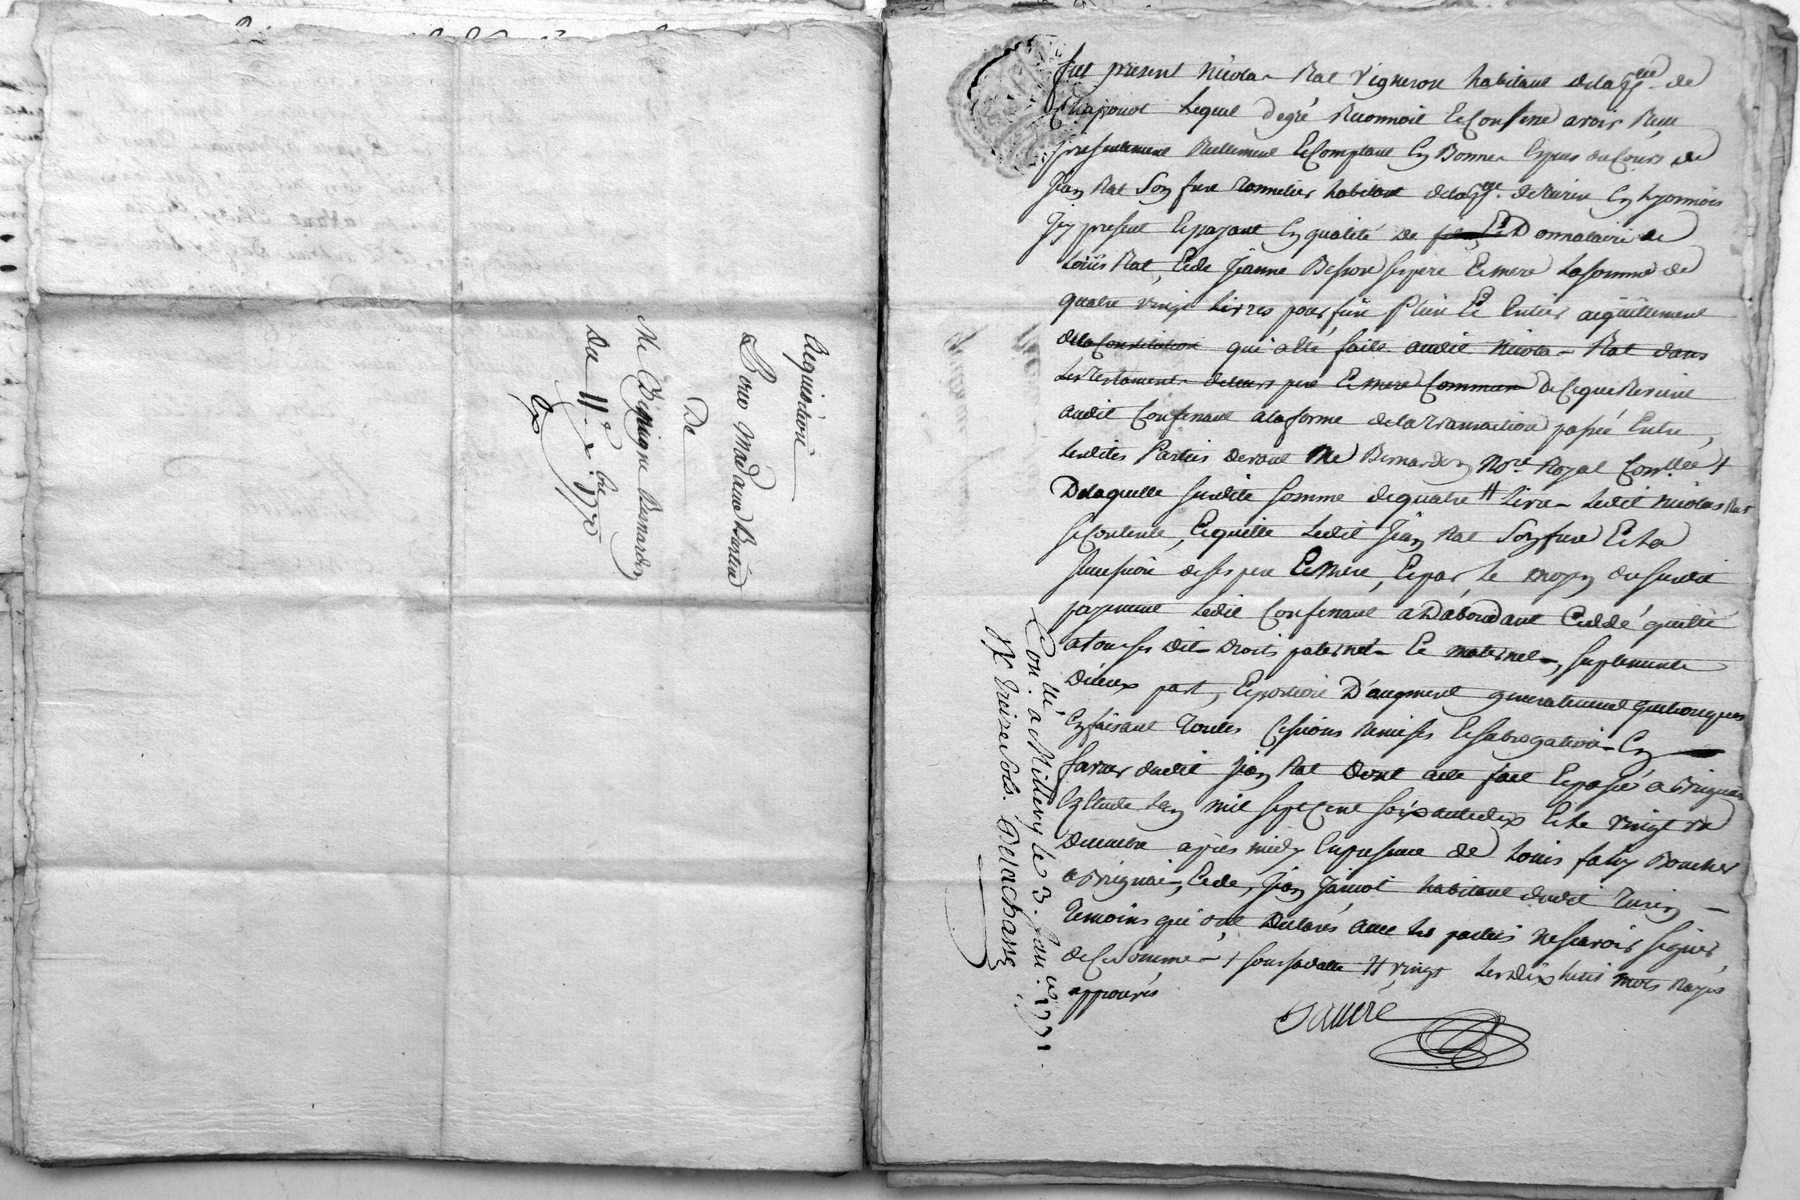 Requisition
Pour Madame Burtin
De
Me Benigne Bernardin
Du 11e xbre 1770
fut present Nicolas Rat Vigneron habitant delaβsse de
Chaponot Lequel degré Reconnoit Et Confesse avoir Reçu
presentement Reellement Et Comptant En Bonnes Especes du Cours de
Jean Rat Son frere tonnelier habitant delaβsse de Turin En Lyonnois
Icy present Et payant En qualité De Donnataire de
Loüis Rat, Et de Jeanne Besson ses pere Et mere La somme de
quatre vingt Livres pour fin plein Et Entier acquittement
dela Constitution qui a été faite audit Nicolas Rat dans
Les Testaments de leurs pere Et mere Communs De Ce que Revient
audit Confessant a la forme dela transaction passée Entre
Lesdites Parties devant Me Bernardin Nore Royal
De laquelle susdite somme de quatre Livres Ledit Nicolas Rat
se Contente, Et quitte Ledit Jean Rat Son frere Et la
succession de ses pere Et Mere, Et par le moyen du susdit
payement Ledit Confessant a D'abondant Cedé quitté
a tous ses dits Droits paternels Et maternels, suplements
D'iceux part, Et portion D'augment generalement quelconques
En faisant toutes Cessions Remises Et subrogations En
faveur dudit Jean Rat Dont acte fait Et passé a Brignais
En Etude L'an mil sept Cent soixante dix Et Le vingt un
Decembre après midy En presence de Louis fahy Boucher
a Brignais, Et de Jean Jamot habitant dudit Turin
temoins qui ont Declarés avec les parties ne sçavoir signer,
de Ce Sommés Les dix huit mots Rayés
approuvés
Con.lé a Millery le 3. Janv. 1771.
R. treize sols. Delachasse